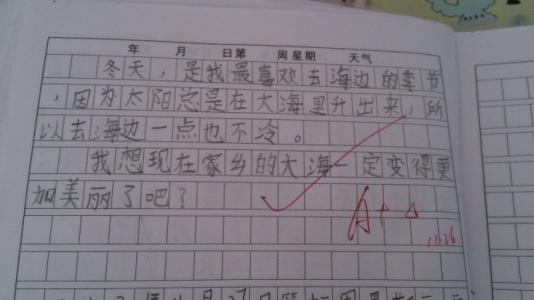 年 月 日第 周星期 天气
冬天，是我最喜欢去海边的季节
，因为太阳总是在大海里升出来，所
以去海边一点也不冷。
我想现在家乡的大海一定变得更
加美丽了吧？
A+